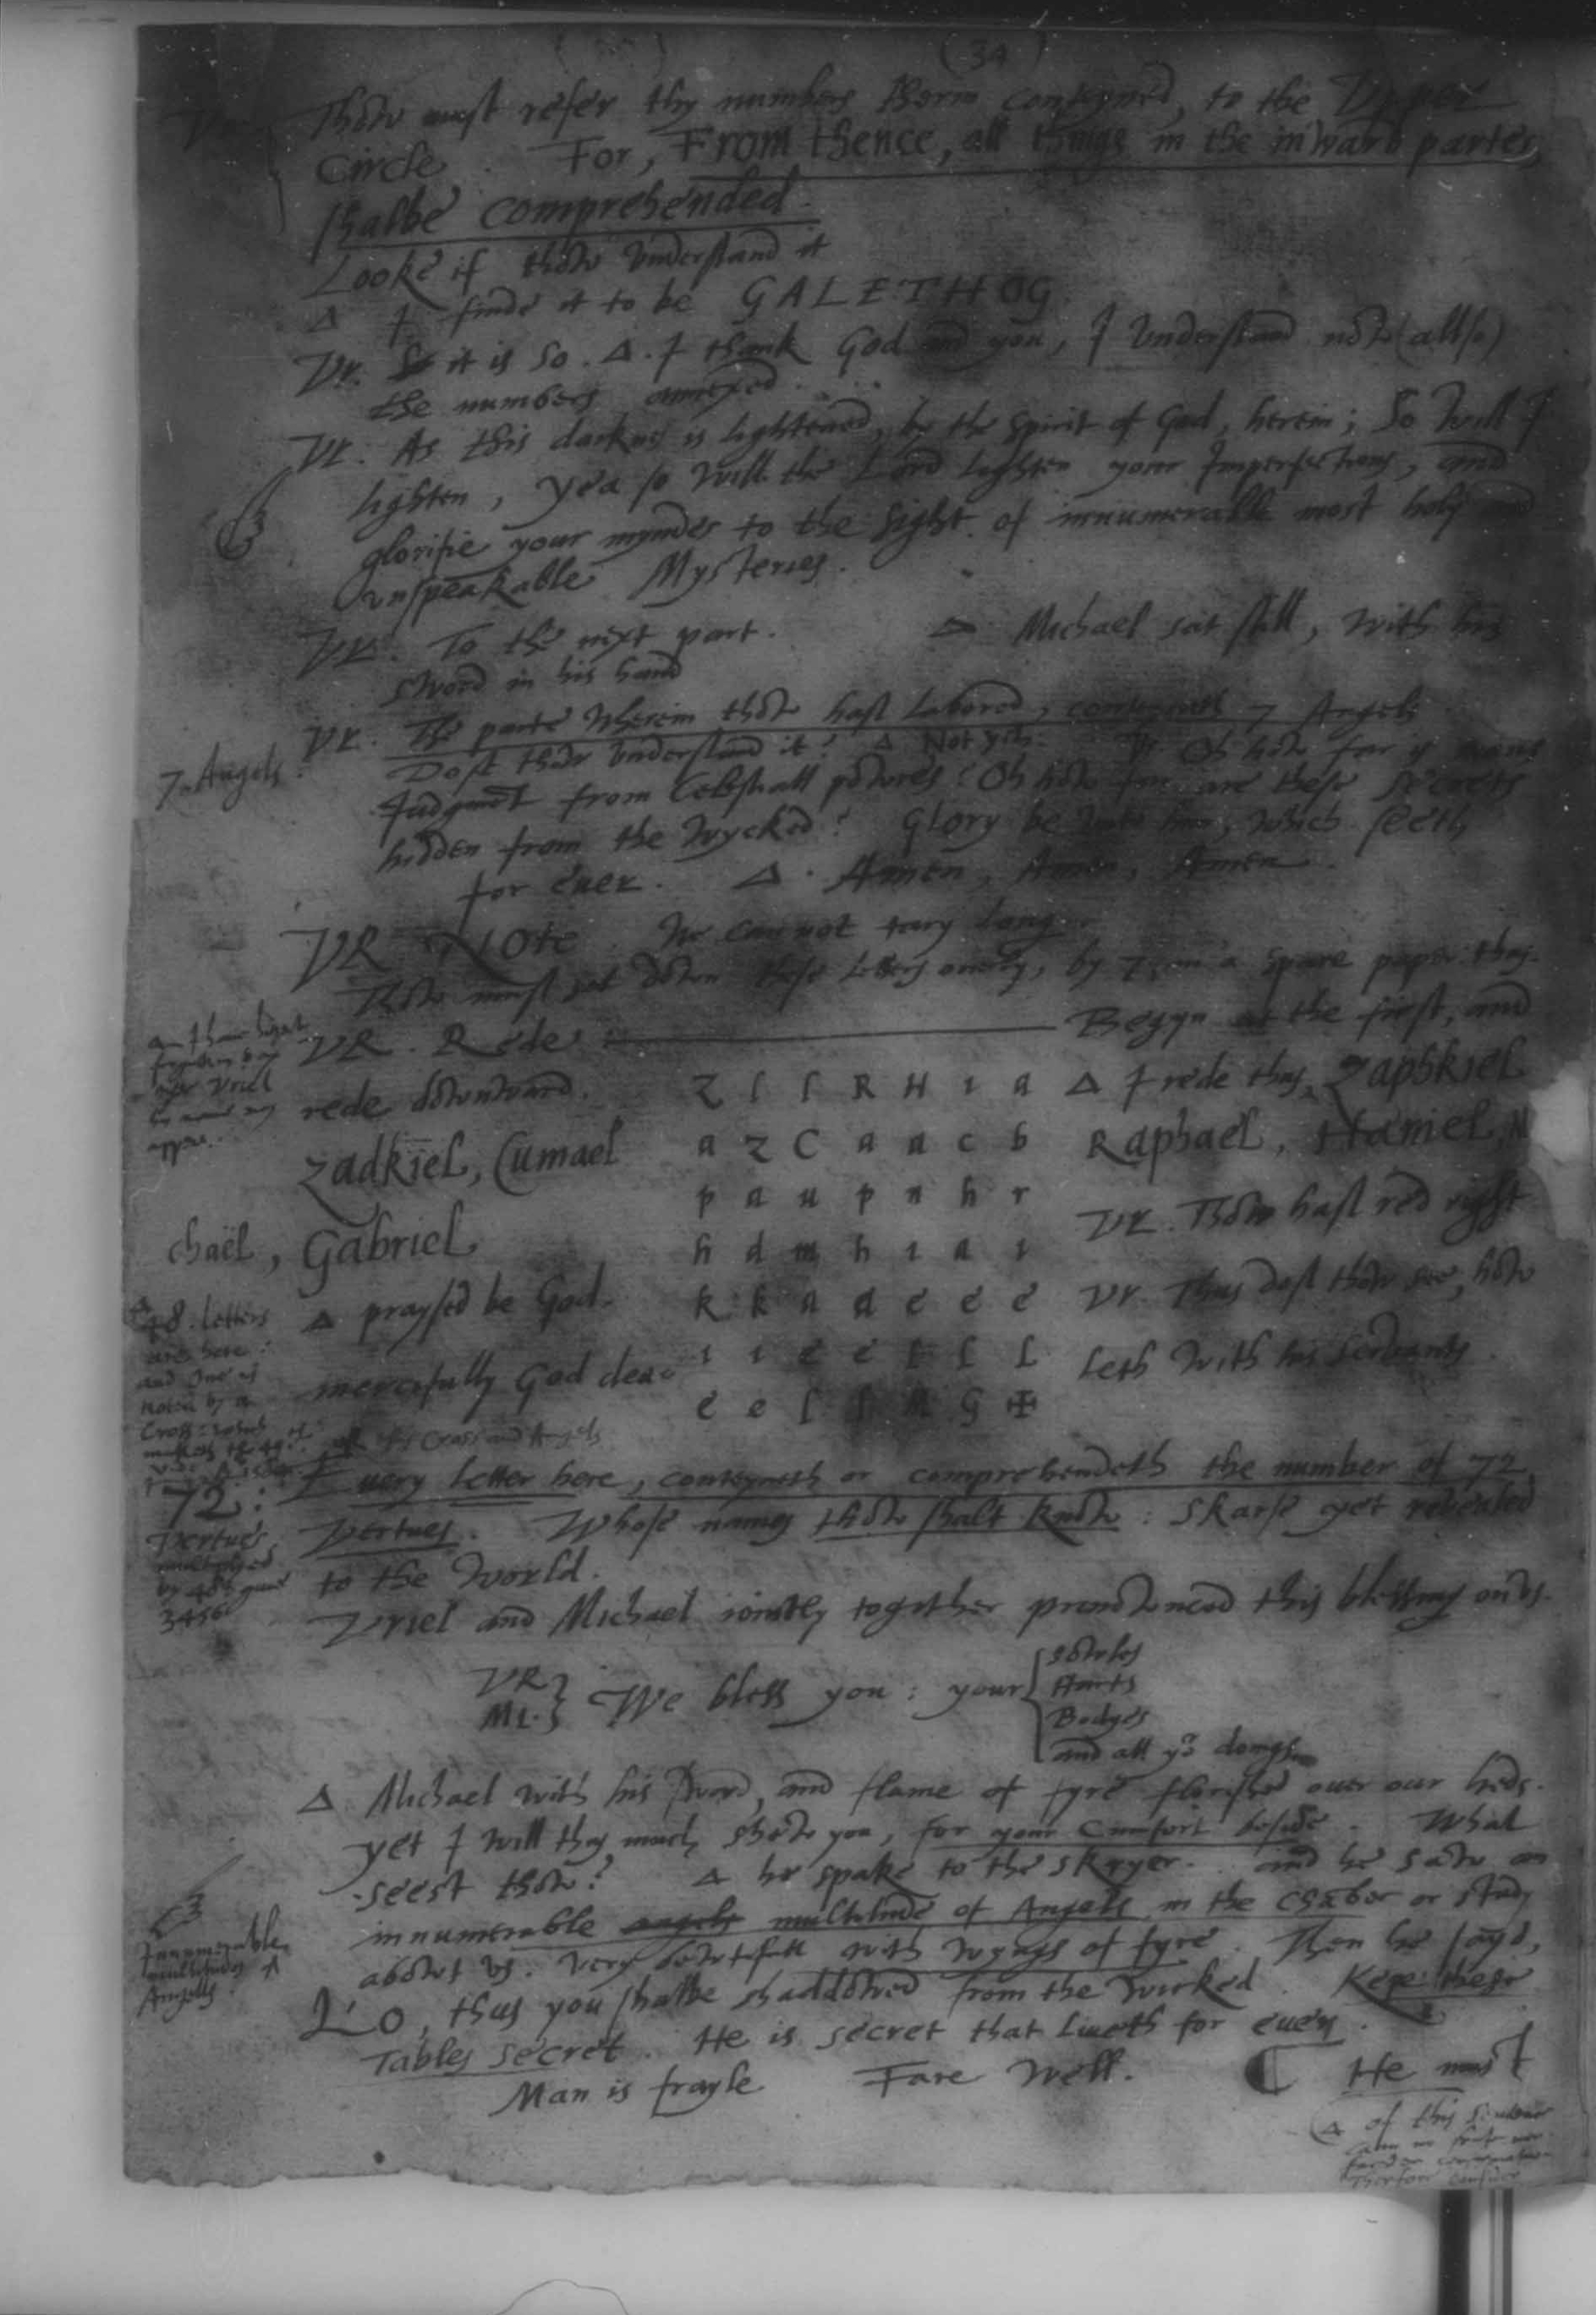 (34)
Thow must refer thy numbers therin conteyned, to the Upper
Circle. For, From thence, all things in the inward partes,
shalbe comprehended.
Looke if thow understand it
Δ I finde it to be GALETHOG
Vr. So it is so. Δ. I thank God and you, I understand now (allso)
the numbers annexed.
Vr. As this darknes is lightened, by the spirit of God, herein; So will I
lighten, yea so will the Lord lighten your Imperfections, and
glorifie your myndes to the sight of innumerable most holy and
unspeakable Mysteries.
Vr. To the next part. Δ Michael sat still, with his
sword in his hand
Vr. The parte wherein thow hast labored, conteyneth 7 Angels
7. Angels.
Dost thow understand it? Δ Not yet. Vr. Oh how far is mans
Judgment from Celestiall powres? Oh how far are these secrets
hidden from the wycked? Glory be unto him, which seeth
for ever. Δ. Amen, Amen, Amen.
VR Note We cannot tary long
Thow must set down these letters onely, by 7, in a spare paper thus
VR. Rede: Begyn at the first, and
rede downward. Z l l R H i a Δ I rede thus, Zaphkiel
Zadkiel, Cumael a z C a a c b Raphael, Haniel,
p a u p n h r
Vr. Thow hast red right
chaël, Gabriel h d m h i a i
Δ praysed be God. k k a a e e e Vr. Thus dost thow see, how
mercifully God dea- i i e e l l L leth with his servants.
e e l l M G ✠
48. letters
are here:
and One is
noted by a
Cross: which
maketh the 49th.
Every letter here, conteyneth or comprehendeth the number of 72
Vertues. Whose names thow shalt know: Skarse yet revealed
to the World.
72:
Vertues
multiplyed
by 48 give
3456
Uriel and Michael jointly together pronownced this blessing on us.
VR
Mi. We bless you: your
Sowles
Harts
Bodyes
and all yor doings
Δ Michael with his sword, and flame of fyre florished over our heds.
yet I will thus much show you, for your Cumfort beside. What
seest thow? Δ he spake to the skryer. and he saw an
innumerable angels multitude of Angels in the Chaber or study
abowt us. very bewtifull with wyngs of fyre. Then he sayd,
Innumerable
multitudes of
Angells
Lo, thus you shalbe shaddowed from the wicked. Kepe these
Tables secret. He is secret that liveth for ever.
Man is frayle Fare well. ¶ He must
Δ of this